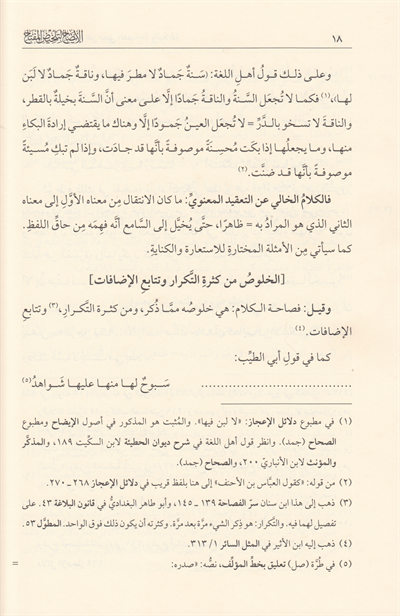 ١٨
الإيضاح لتلخيص المفتاح
وعلى ذلك قولُ أهلِ اللغة: (سَنةٌ جَمادٌ لا مطرَ فيها، وناقةٌ جَمادٌ لا لبَن
لها)،(١) فكما لا تُجعَل السَّنةُ والناقةُ جَمادًا إلَّا على معنى أنَّ السَّنةَ بخيلةٌ بالقطر،
والناقةَ لا تسخو بالدَّرِّ = لا تُجعل العينُ جَمودًا إلَّا وهناك ما يقتضي إرادةَ البكاءِ
منها، وما يجعلُها إذا بكَت مُحسِنةً موصوفةً بأنَّها قد جادَت، وإذا لم تبكِ مُسيئةً
موصوفةً بأنَّها قد ضنَّت.(٢)
فالكلامُ الخالي عن التعقيد المعنويِّ: ما كان الانتقال مِن معناه الأوَّلِ إلى معناه
الثاني الذي هو المرادُ به = ظاهرًا، حتَّى يُخيَّل إلى السَّامع أنَّه فهِمَه مِن حاقِّ اللفظِ.
كما سيأتي مِن الأمثلة المختارةِ للاستعارة والكناية.
[الخلوصُ من كثرةِ التَّكرار وتتابع الإضافات]
وقيل: فصاحة الكلام: هي خلوصُه ممَّا ذُكر، ومن كثرة التَّكرارِ،(٣) وتتابعِ
الإضافات.(٤)
كما في قولِ أبي الطيِّب:
..................................... سَبوحٌ لـهـا منهـا عليهـا شـواهـدُ(٥)
(١) في مطبوع دلائل الإعجاز: «لا لبن فيها». والمُثبت هو المذكور في أصول الإيضاح ومطبوع
الصحاح (جمد). وانظر قول أهل اللغة في شرح ديوان الحطيئة لابن السكّيت ١٨٩، والمذكّر
والمؤنث لابن الأنباريّ ٢٠٠، والصحاح (جمد).
(٢) من قوله: «كقول العبَّاس بن الأحنف» إلى هنا بلفظ قريب في دلائل الإعجاز ٢٦٨ - ٢٧٠.
(٣) ذهب إلى هذا ابن سنان سرّ الفصاحة ١٣٩ - ١٤٥، وأبو طاهر البغداديُّ في قانون البلاغة ٤٣. على
تفصيل لهما فيه. والتَّكرار: هو ذِكر الشيء مرَّة بعد مرَّة. وكثرته أن يكون ذلك فوق الواحد. المطوَّل ٥٣.
(٤) ذهب إليه ابن الأثير في المثل السائر ٣١٣/١.
(٥) في طُرَّة (صل) تعليق بخطِّ المؤلِّف، نصُّه: «صدره:
=